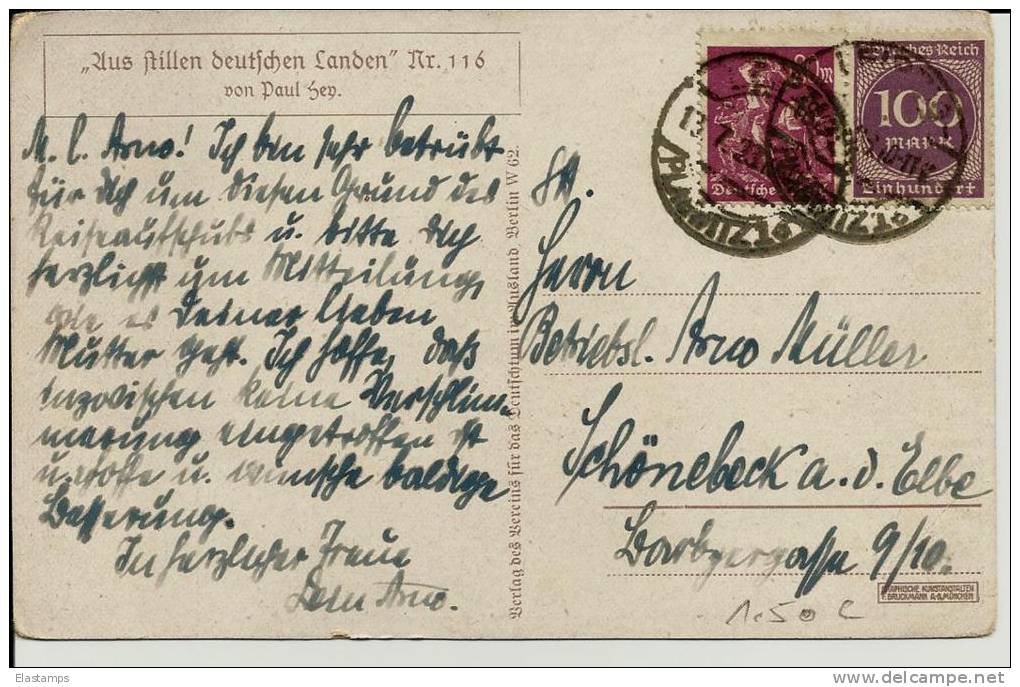 „Aus stillen deutschen Landen“ Nr. 116
von Paul Hey.
M. l. Arno! Ich bin sehr betrübt
für Dich um diesen Grund des
Reiseaufschubs u. bitte Dich
herzlichst um Mitteilung,
wie es Deiner lieben
Mutter geht. Ich hoffe, daß
inzwischen keine Verschlim-
merung eingetroffen ist
u. hoffe u. wünsche baldige
Besserung.
In herzlicher Treue
Dein Arno.
Verlag des Vereins für das Deutschtum im Ausland, Berlin W 62.
Deutsches Reich
100
MARK
Einhundert
Deutsches
LEIPZIG
13.7.23
PLAGWITZ
Herrn
Betriebsl. Arno Müller
Schönebeck a. d. Elbe
9/10.
GRAPHISCHE KUNSTANSTALTEN
F. BRUCKMANN A.-G. MÜNCHEN
1.50 €
Elastamps
www.delcampe.net